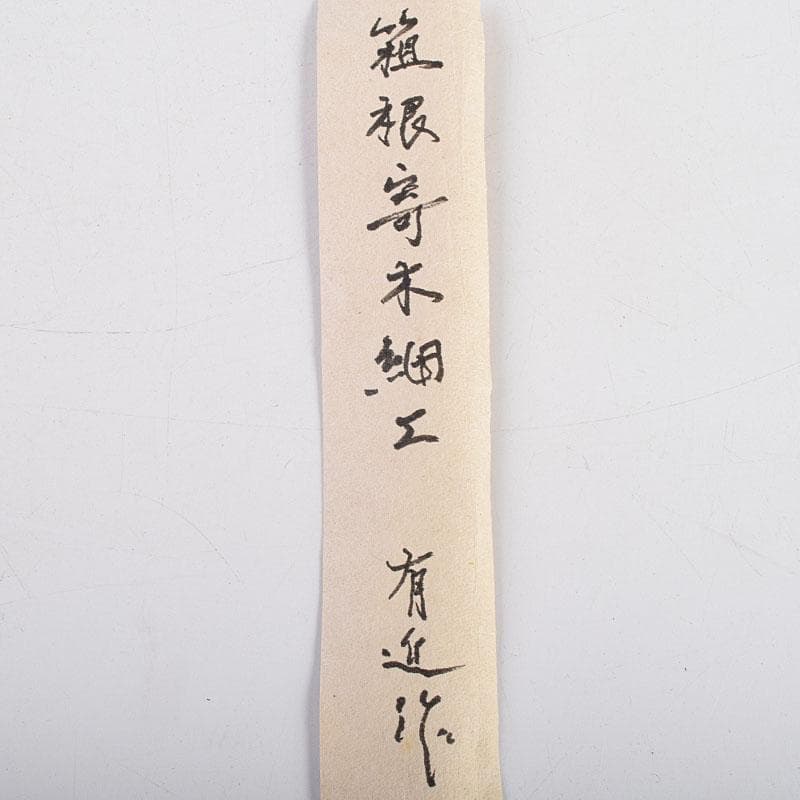 箱根寄木細工 有進作